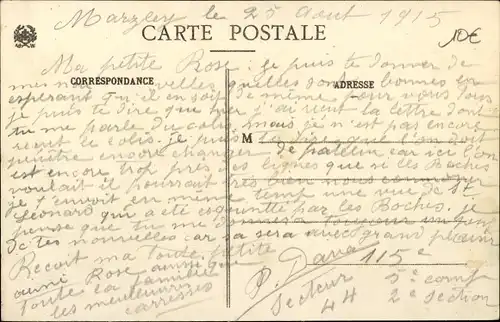 Marzley le 25 Aout 1915
10€
CARTE POSTALE
CORRESPONDANCE
ADRESSE
M
Ma petite Rose: je puis te donner de
mes nouvelles quelles sont bonnes en
esperant qu'il en soit de même pour vous tous
je puis te dire que j'ai reçut la lettre dont
tu me parle du colis mais je n'est pas encore
reçut le colis. je puis te dire que l'on doit
peutitre encore changer de patellin car ici l'on
est encore trop près des lignes que si les Boches
voulait il pourrait très bien nous
je t'envoit en même tent une vue de St
Léonard qui a été par les Boches. je
pense que tu me donnera toujour
de tes nouvelles car sa sera avec grand plaisir
Recoit ma toute petite
Rose ainsi que
toute la famille
les meilleures
caresses
P. Dara
115e
5e comp
Secteur
44
2e section